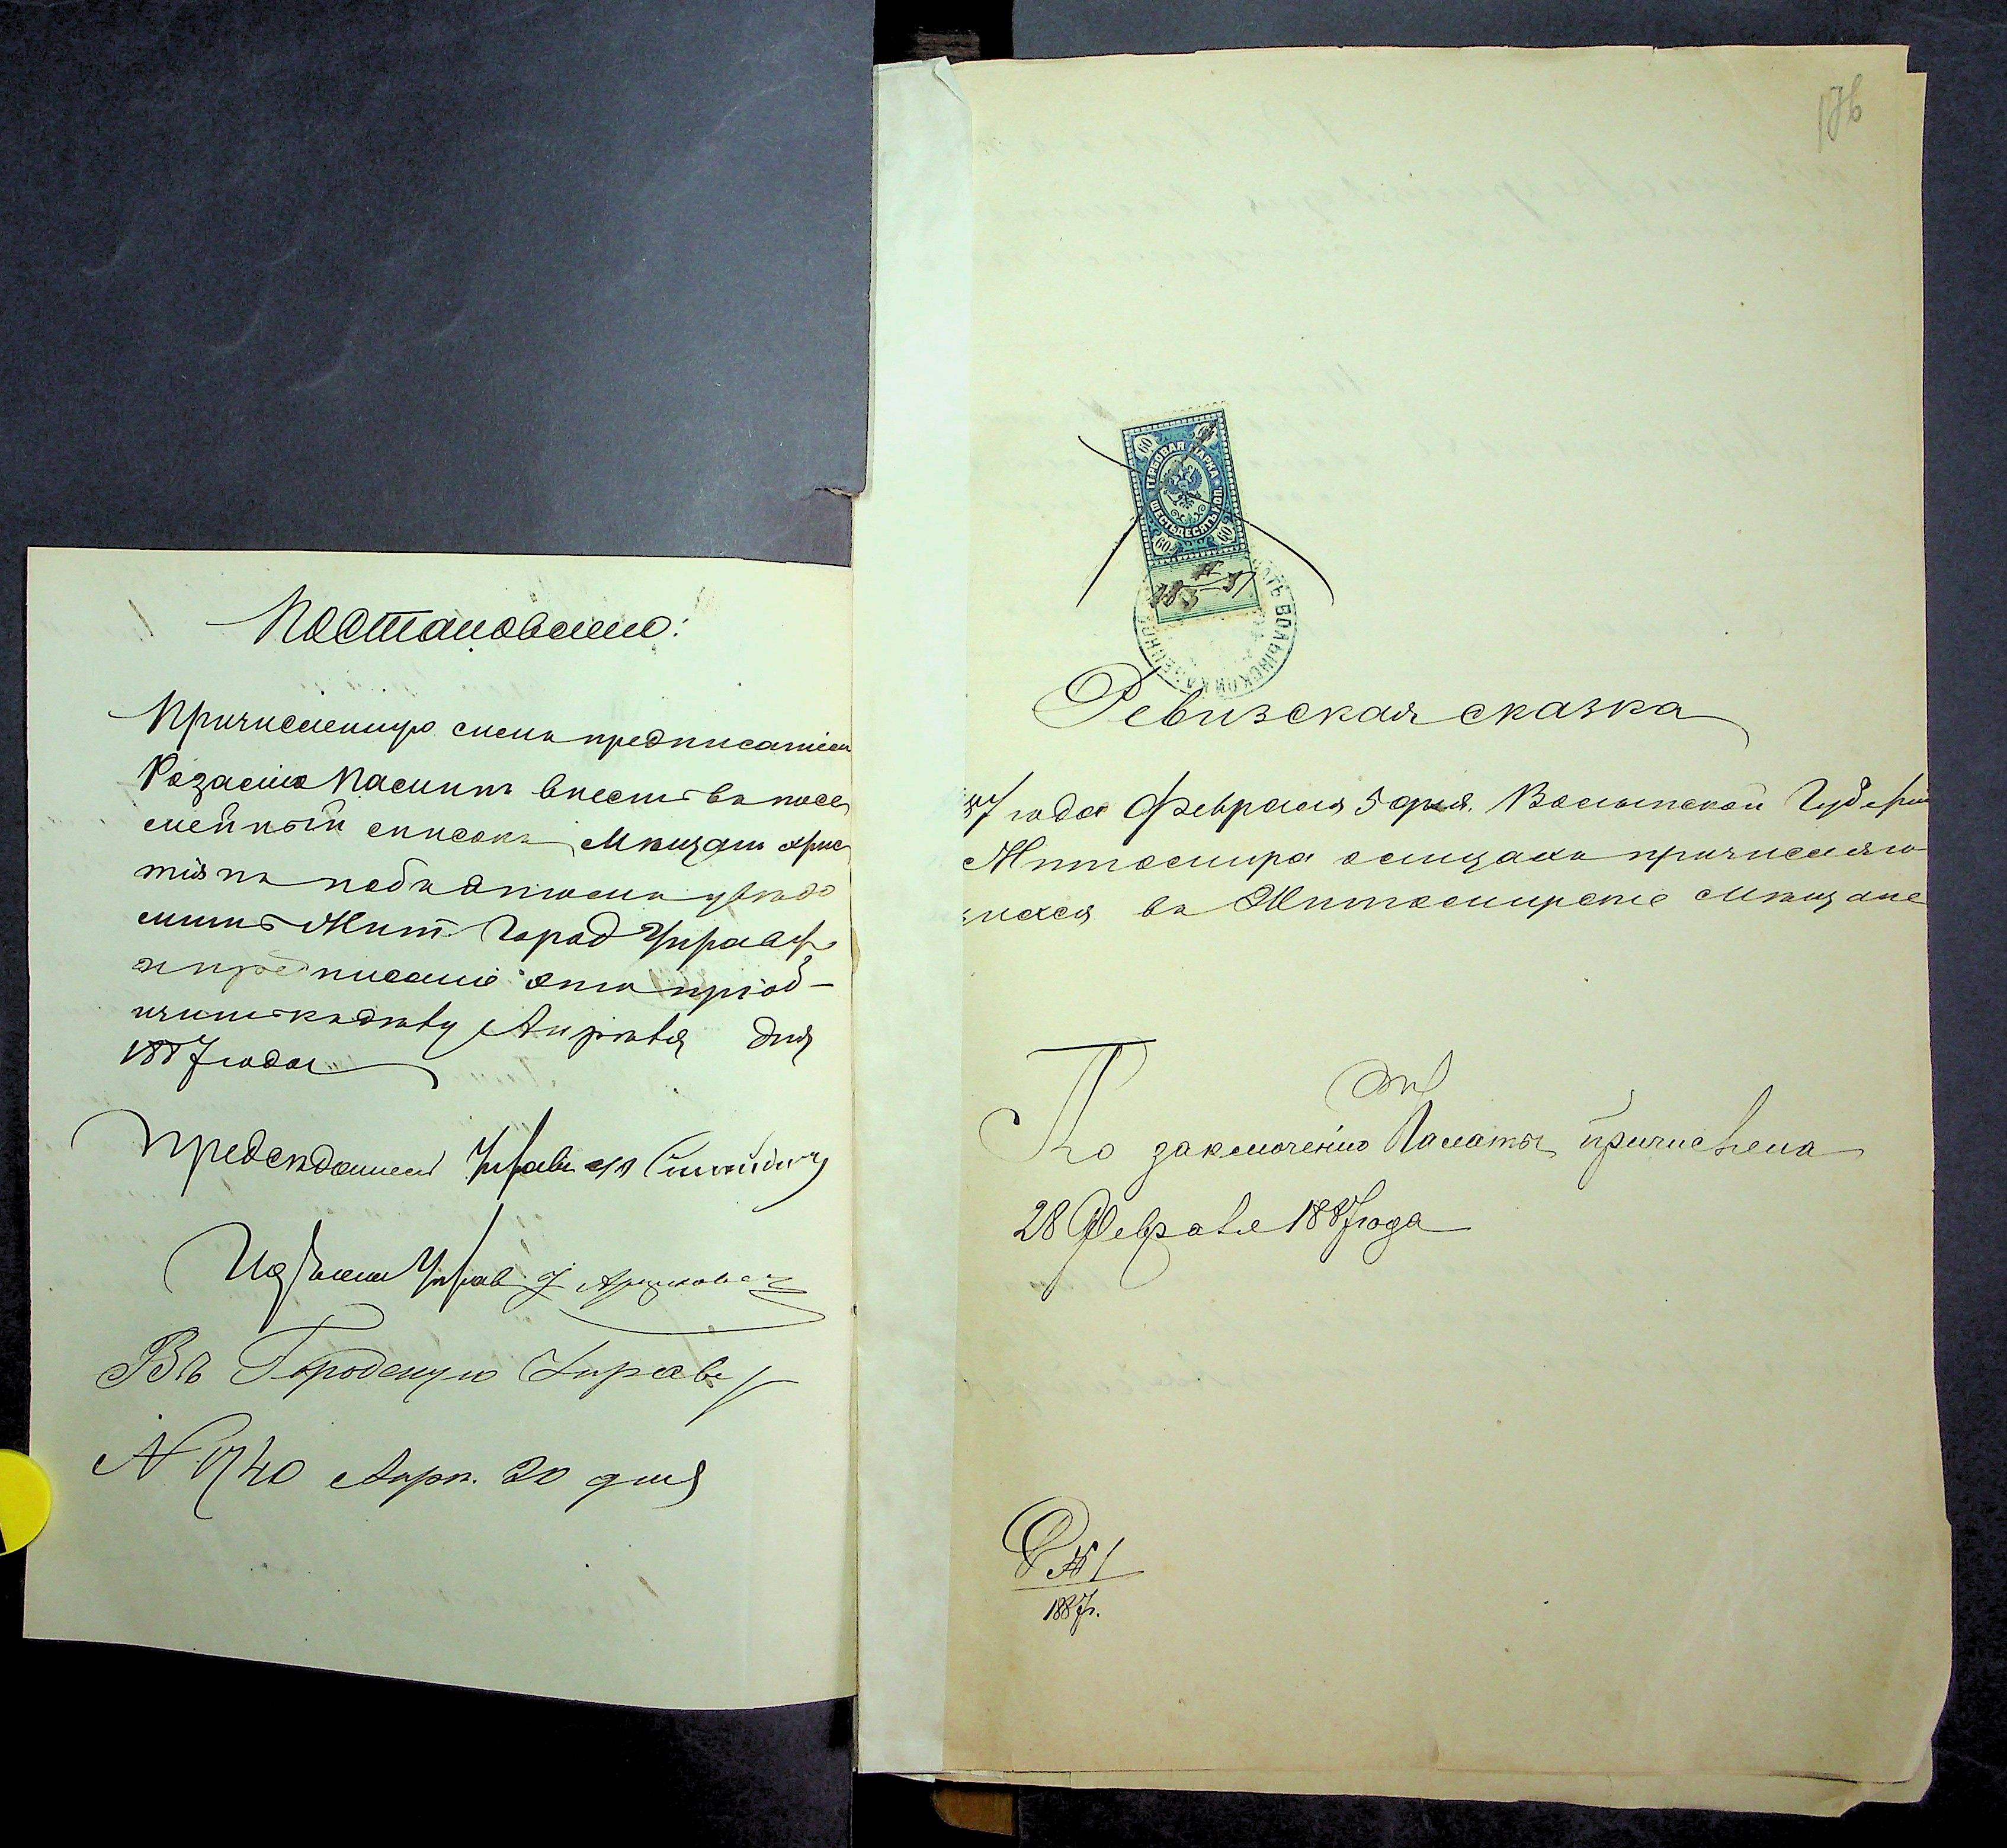 Постановлено:
Причисленную симъ предписаніемъ
Розалію Пасикъ внесть въ посе
мейный списокъ Мѣщанъ христ
тіянъ объ этомъ увѣдо
мить Жит. Город Управу
а предписаніе это пріоб-
щить къ дѣлу Апрѣля дня
1887 года
Предсѣдатель Управы
Управ
Въ Городскую Управу
N 1740 Апрѣ. 20 дня
176
60 60
ГЕРБОВАЯ МАРКА
ШЕСТЬДЕСЯТЪ КОП.
60 60
ВОЛЫНСКОЙ КАЗЕННОЙ
Ревизская сказка
87 года Февраля 5 дня. Волынской Губерн
Житомира о лицахъ причисляю
щихся въ Житомирскіе мѣщане
По заключенію Палаты причислена
28 Февраля 1887 года
Р № 1
1887 г.